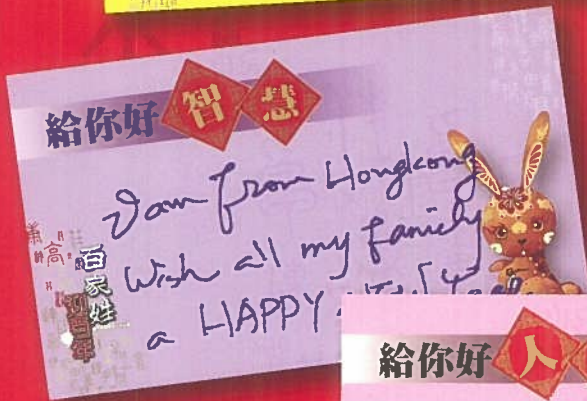 給你好智慧
I am from Hongkong
Wish all my family
a HAPPY
百家姓
高
給你好人